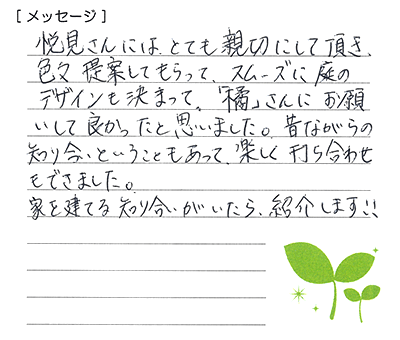 [メッセージ]
悦見さんには、とても親切にして頂き、
色々提案してもらって、スムーズに庭の
デザインも決まって、「橘」さんにお願
いして良かったと思いました。昔ながらの
知り合いということもあって、楽しく打ち合わせ
もできました。
家を建てる知り合いがいたら、紹介します!!